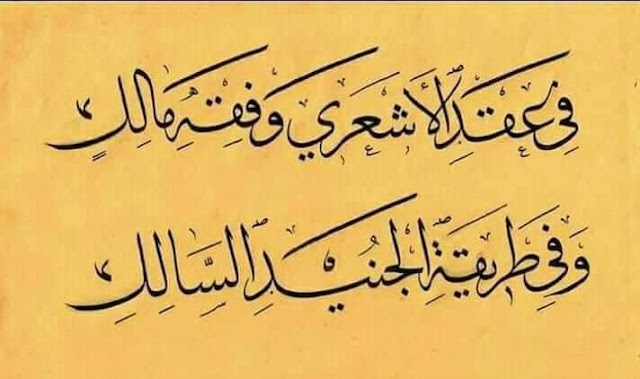 فِي عَقْدِ الأَشْعَرِي وَفِقْهِ مَالِكٍ
وَفِي طَرِيقَةِ الجُنَيْدِ السَّالِكِ